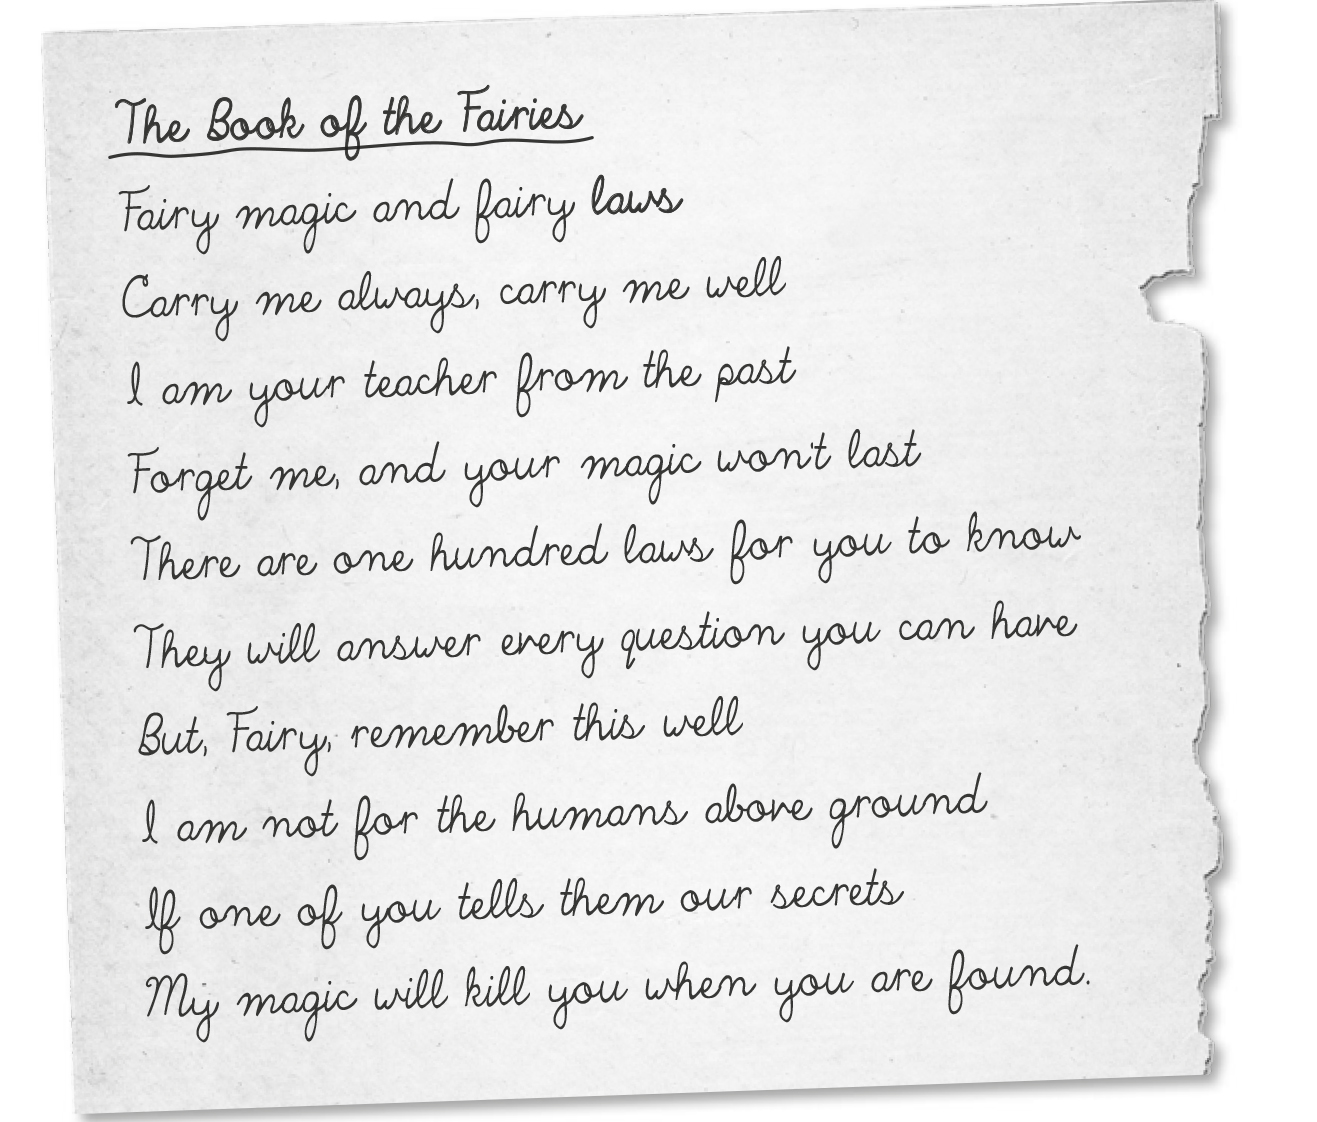 The Book of the Fairies
Fairy magic and fairy laws
Carry me always, carry me well
I am your teacher from the past
Forget me, and your magic won't last
There are one hundred laws for you to know
They will answer every question you can have
But, Fairy, remember this well
I am not for the humans above ground
If one of you tells them our secrets
My magic will kill you when you are found.